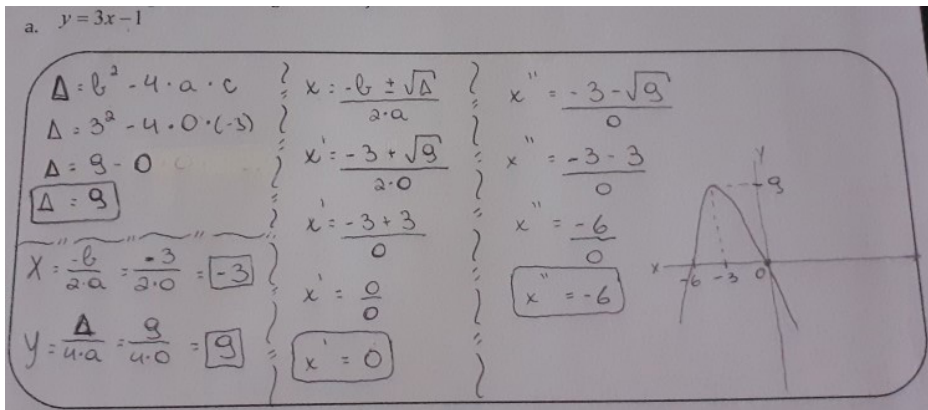 a. y = 3x – 1
Δ = b² - 4 · a · c
Δ = 3² - 4 · 0 · (-3)
Δ = 9 - 0
Δ = 9
X = -b/2·a = -3/2·0 = -3
y = Δ/4·a = 9/4·0 = 9
x = -b ± √Δ/2·a
x' = -3 + √9/2·0
x' = -3 + 3/0
x' = 0/0
x' = 0
x'' = -3 - √9/0
x'' = -3 - 3/0
x'' = -6/0
x'' = -6
y
9
x -6 -3 0